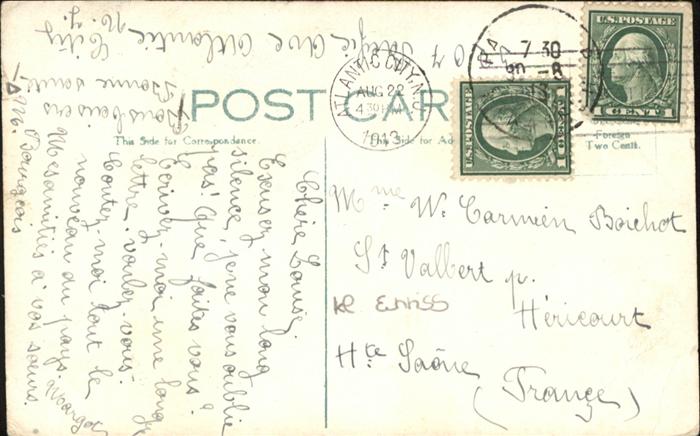 POST CARD
This Side for Correspondence.
This Side for Ad
Foreign
Two Cents.
U.S. POSTAGE
1 CENT 1
ATLANTIC CITY, N.J.
AUG 22
4 30 PM
1913
7 30
30 - 8
Chère Louise.
Excusez mon long
silence, je ne vous oublie
pas! Que faites vous?
Ecrivez-moi une longue
lettre. voulez-vous-
Contez-moi tout le
nouveau du pays.
Mes amitiés à vos sœurs
Bons baisers
Bonne santé
Ave Atlantic City
N. J.
Mme W. Carmien Boichot
St Valbert p.
Héricourt
Hte Saône
(France)